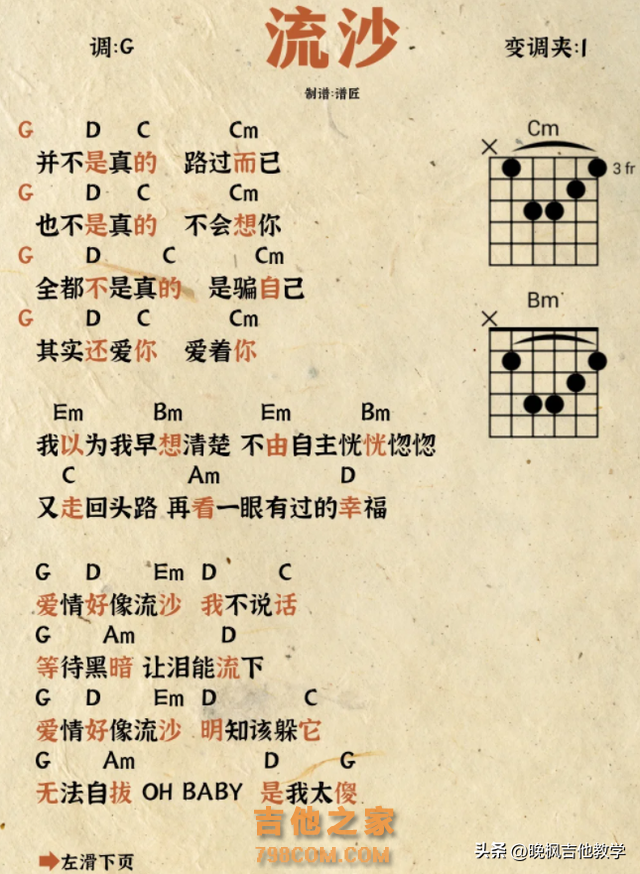 流沙
调:G
变调夹:1
制谱:谱匠
G D C Cm
并不是真的 路过而已
G D C Cm
也不是真的 不会想你
G D C Cm
全都不是真的 是骗自己
G D C Cm
其实还爱你 爱着你
Cm
×
3 fr
Bm
×
Em Bm Em Bm
我以为我早想清楚 不由自主恍恍惚惚
C Am D
又走回头路 再看一眼有过的幸福
G D Em D C
爱情好像流沙 我不说话
G Am D
等待黑暗 让泪能流下
G D Em D C
爱情好像流沙 明知该躲它
G Am D G
无法自拔 OH BABY 是我太傻
吉他之家
798COM.COM
左滑下页
头条 @晚枫吉他教学